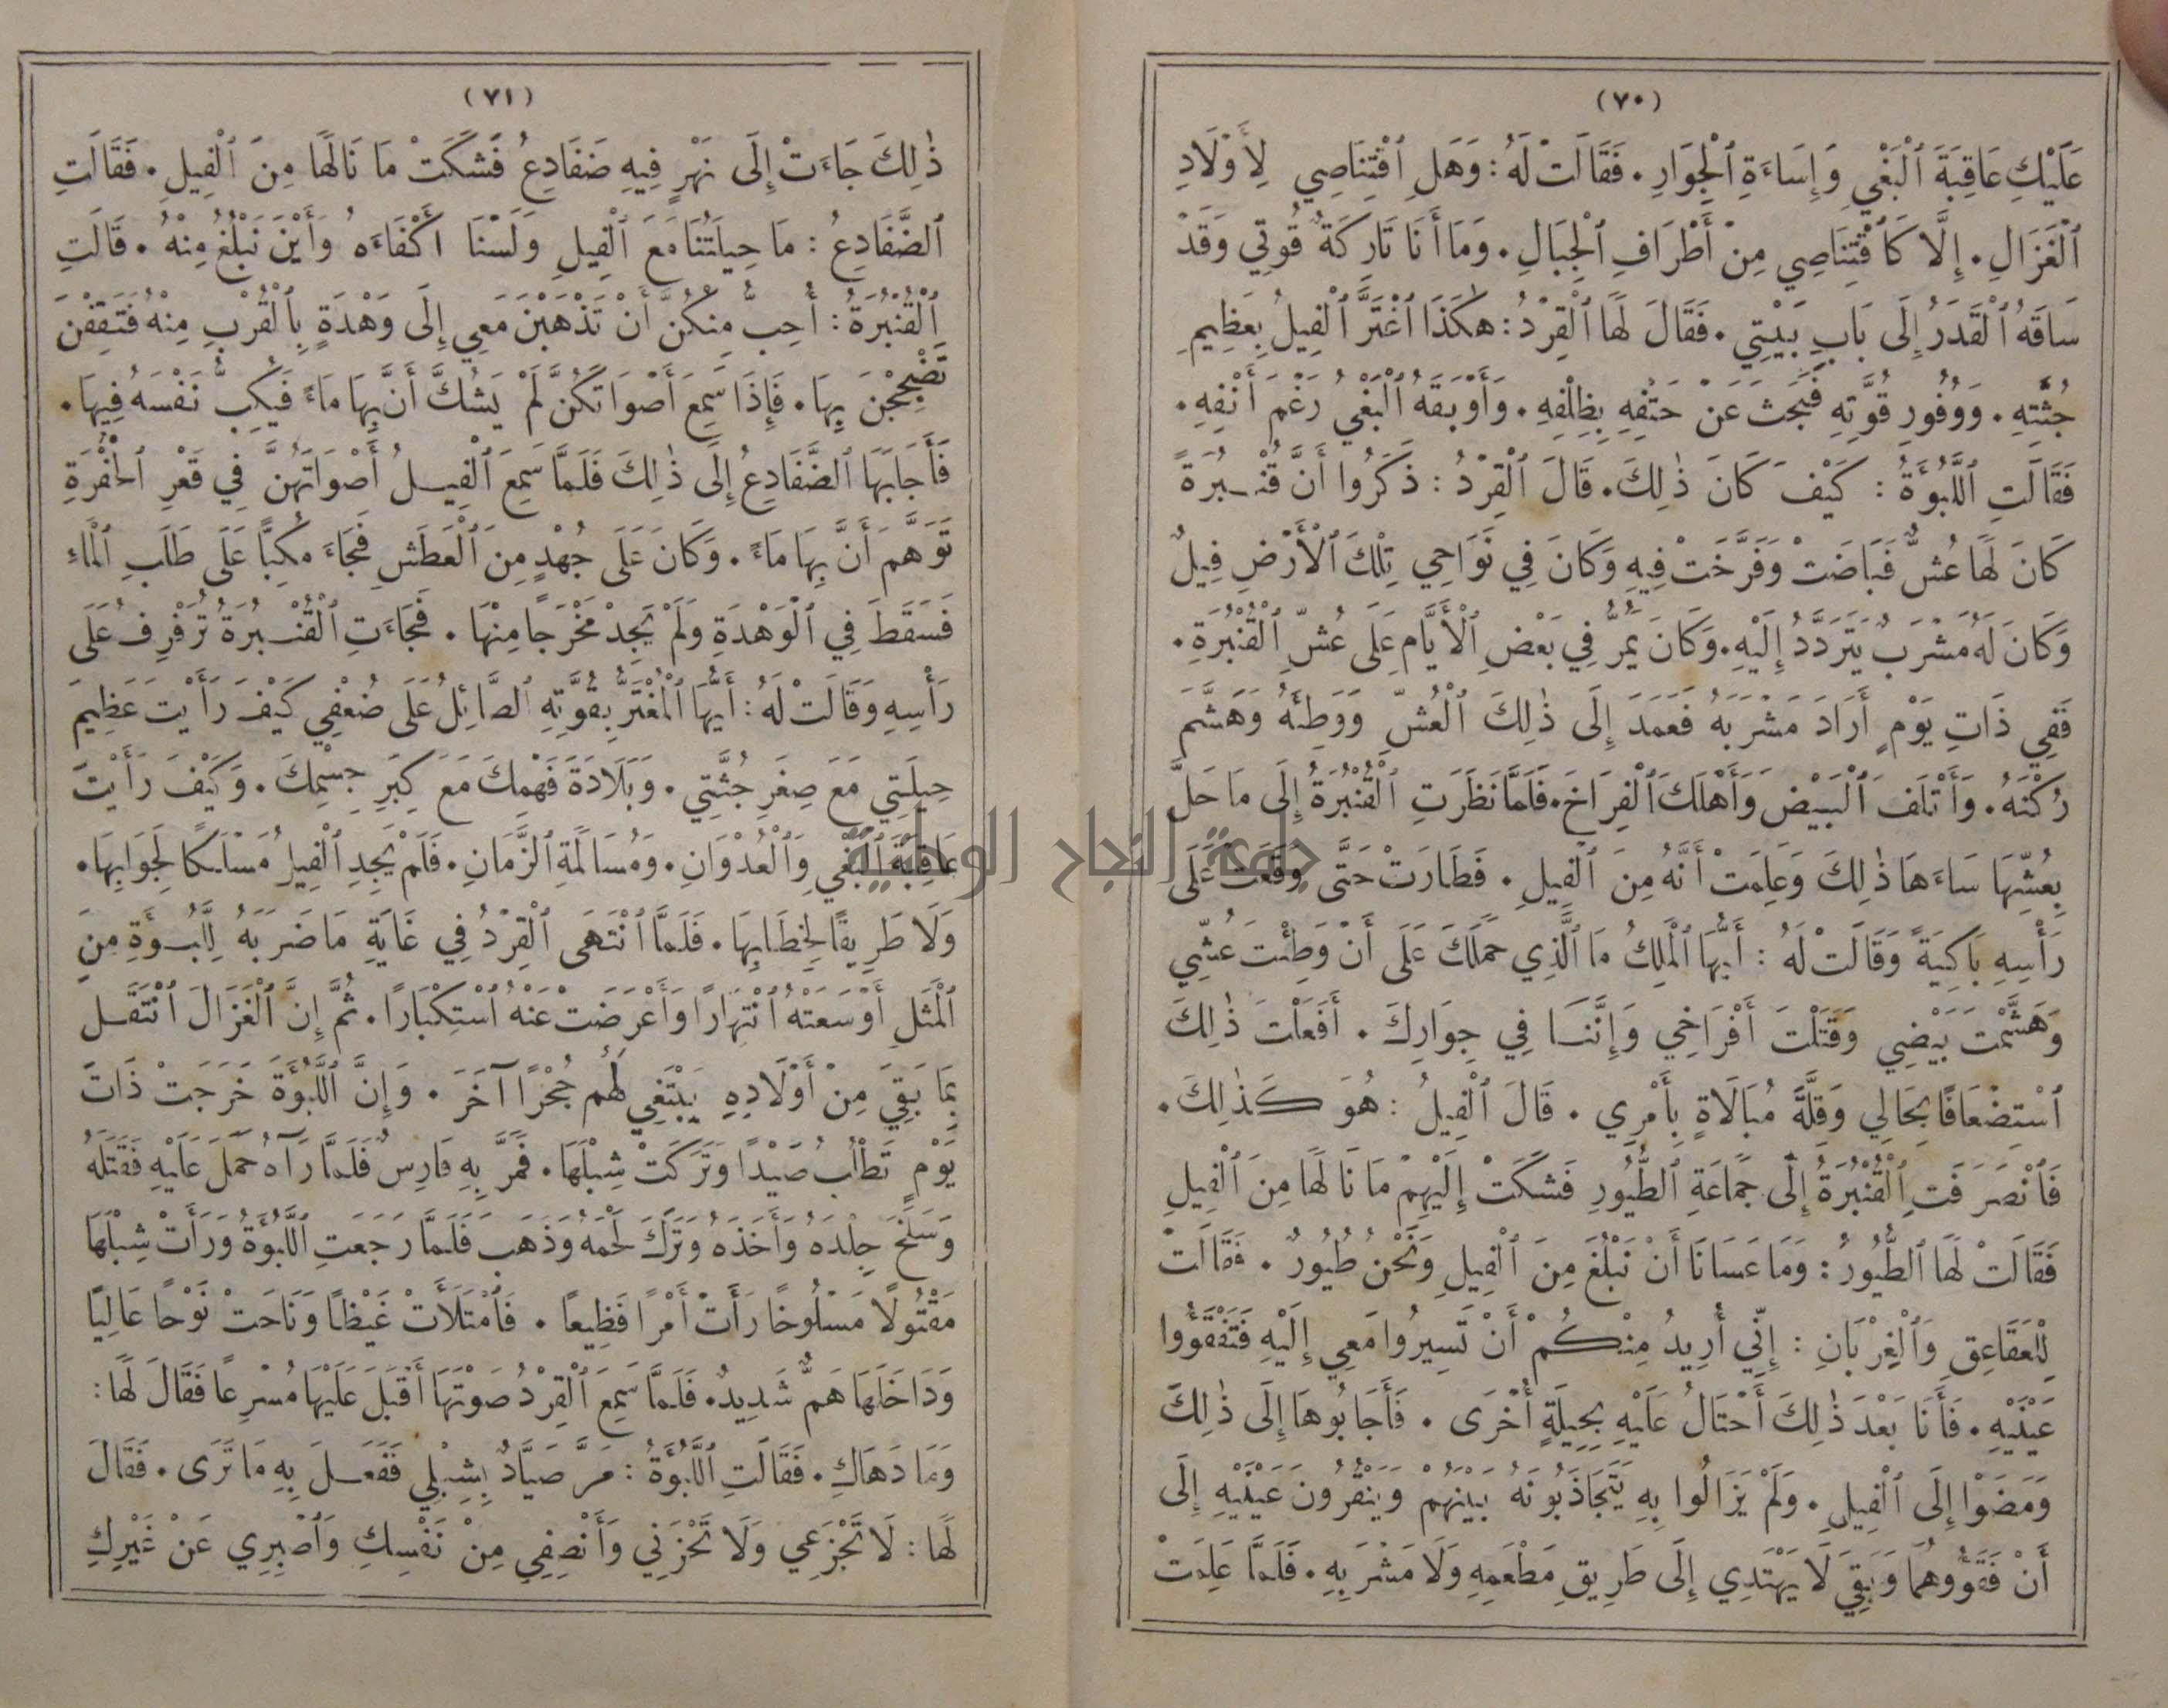 (٧٠)
عَلَيْكِ عَاقِبَةَ ٱلْبَغْيِ وَإِسَاءَةِ ٱلْجِوَارِ. فَقَالَتْ لَهُ: وَهَلِ ٱقْتِنَاصِي لِأَوْلَادِ
ٱلْغَزَالِ. إِلَّا كَٱقْتِنَاصِي مِنْ أَطْرَافِ ٱلْجِبَالِ. وَمَا أَنَا تَارِكَةٌ قُوتِي وَقَدْ
سَاقَهُ ٱلْقَدَرُ إِلَى بَابِ بَيْتِي. فَقَالَ لَهَا ٱلْقِرْدُ: هٰكَذَا ٱغْتَرَّ ٱلْفِيلُ بِعَظِيمِ
جُثَّتِهِ. وَوُفُورِ قُوَّتِهِ فَبَحَثَ عَنْ حَتْفِهِ بِظِلْفِهِ. وَأَوْبَقَهُ ٱلْبَغْيُ رَغْمَ أَنْفِهِ.
فَقَالَتِ ٱللَّبُؤَةُ: كَيْفَ كَانَ ذٰلِكَ. قَالَ ٱلْقِرْدُ: ذَكَرُوا أَنَّ قُنْبُرَةً
كَانَ لَهَا عُشٌّ فَبَاضَتْ وَفَرَّخَتْ فِيهِ وَكَانَ فِي نَوَاحِي تِلْكَ ٱلْأَرْضِ فِيلٌ
وَكَانَ لَهُ مَشْرَبٌ يَتَرَدَّدُ إِلَيْهِ. وَكَانَ يَمُرُّ فِي بَعْضِ ٱلْأَيَّامِ عَلَى عُشِّ ٱلْقُنْبُرَةِ.
فَفِي ذَاتِ يَوْمٍ أَرَادَ مَشْرَبَهُ فَعَمَدَ إِلَى ذٰلِكَ ٱلْعُشِّ وَوَطِئَهُ وَهَشَّمَ
رُكْنَهُ. وَأَتْلَفَ ٱلْبَيْضَ وَأَهْلَكَ ٱلْفِرَاخَ. فَلَمَّا نَظَرَتِ ٱلْقُنْبُرَةُ إِلَى مَا حَلَّ
بِعُشِّهَا سَاءَهَا ذٰلِكَ وَعَلِمَتْ أَنَّهُ مِنَ ٱلْفِيلِ. فَطَارَتْ حَتَّى وَقَعَتْ عَلَى
رَأْسِهِ بَاكِيَةً وَقَالَتْ لَهُ: أَيُّهَا ٱلْمَلِكُ مَا ٱلَّذِي حَمَلَكَ عَلَى أَنْ وَطِئْتَ عُشِّي
وَهَشَّمْتَ بَيْضِي وَقَتَلْتَ أَفْرَاخِي وَإِنَّنَا فِي جِوَارِكَ. أَفَعَلْتَ ذٰلِكَ
ٱسْتِضْعَافًا بِحَالِي وَقِلَّةَ مُبَالَاةٍ بِأَمْرِي. قَالَ ٱلْفِيلُ: هُوَ كَذٰلِكَ.
فَٱنْصَرَفَتِ ٱلْقُنْبُرَةُ إِلَى جَمَاعَةِ ٱلطُّيُورِ فَشَكَتْ إِلَيْهِمْ مَا نَالَهَا مِنَ ٱلْفِيلِ
فَقَالَتْ لَهَا ٱلطُّيُورُ: وَمَا عَسَانَا أَنْ نَبْلُغَ مِنَ ٱلْفِيلِ وَنَحْنُ طُيُورٌ. فَقَالَتْ
لِلْعَقَاعِقِ وَٱلْغِرْبَانِ: إِنِّي أُرِيدُ مِنْكُمْ أَنْ تَسِيرُوا مَعِي إِلَيْهِ فَتَفْقَؤُوا
عَيْنَيْهِ. فَأَنَا بَعْدَ ذٰلِكَ أَحْتَالُ عَلَيْهِ بِحِيلَةٍ أُخْرَى. فَأَجَابُوهَا إِلَى ذٰلِكَ
وَمَضَوْا إِلَى ٱلْفِيلِ. وَلَمْ يَزَالُوا بِهِ يَتَجَاذَبُونَهُ بَيْنَهُمْ وَيَنْقُرُونَ عَيْنَيْهِ إِلَى
أَنْ فَقَؤُوهُمَا وَبَقِيَ لَا يَهْتَدِي إِلَى طَرِيقِ مَطْعَمِهِ وَلَا مَشْرَبِهِ. فَلَمَّا عَلِمَتْ
(٧١)
ذٰلِكَ جَاءَتْ إِلَى نَهْرٍ فِيهِ ضَفَادِعُ فَشَكَتْ مَا نَالَهَا مِنَ ٱلْفِيلِ. فَقَالَتِ
ٱلضَّفَادِعُ: مَا حِيلَتُنَا مَعَ ٱلْفِيلِ وَلَسْنَا أَكْفَاءَهُ وَأَيْنَ نَبْلُغُ مِنْهُ. قَالَتِ
ٱلْقُنْبُرَةُ: أُحِبُّ مِنْكُنَّ أَنْ تَذْهَبْنَ مَعِي إِلَى وَهْدَةٍ بِٱلْقُرْبِ مِنْهُ فَتَقِفْنَ
تَضْجِجْنَ بِهَا. فَإِذَا سَمِعَ أَصْوَاتَكُنَّ لَمْ يَشُكَّ أَنَّ بِهَا مَاءً فَيَكِبُّ نَفْسَهُ فِيهَا.
فَأَجَابَهَا ٱلضَّفَادِعُ إِلَى ذٰلِكَ فَلَمَّا سَمِعَ ٱلْفِيلُ أَصْوَاتَهُنَّ فِي قَعْرِ ٱلْحُفْرَةِ
تَوَهَّمَ أَنَّ بِهَا مَاءً. وَكَانَ عَلَى جُهْدٍ مِنَ ٱلْعَطَشِ فَجَاءَ مُكِبًّا عَلَى طَلَبِ ٱلْمَاءِ
فَسَقَطَ فِي ٱلْوَهْدَةِ وَلَمْ يَجِدْ مَخْرَجًا مِنْهَا. فَجَاءَتِ ٱلْقُنْبُرَةُ تُرَفْرِفُ عَلَى
رَأْسِهِ وَقَالَتْ لَهُ: أَيُّهَا ٱلْمُغْتَرُّ بِقُوَّتِهِ ٱلصَّائِلُ عَلَى ضُعْفِي كَيْفَ رَأَيْتَ عَظِيمَ
حِيلَتِي مَعَ صِغَرِ جُثَّتِي. وَبَلَادَةَ فَهْمِكَ مَعَ كِبَرِ جِسْمِكَ. وَكَيْفَ رَأَيْتَ
عَاقِبَةَ ٱلْبَغْيِ وَٱلْعُدْوَانِ. وَمُسَالَمَةِ ٱلزَّمَانِ. فَلَمْ يَجِدِ ٱلْفِيلُ مَسْلَكًا لِجَوَابِهَا.
وَلَا طَرِيقًا لِخِطَابِهَا. فَلَمَّا ٱنْتَهَى ٱلْقِرْدُ فِي غَايَةِ مَا ضَرَبَهُ لِلَّبُوءَةِ مِنَ
ٱلْمَثَلِ أَوْسَعَتْهُ ٱنْتِهَارًا وَأَعْرَضَتْ عَنْهُ ٱسْتِكْبَارًا. ثُمَّ إِنَّ ٱلْغَزَالَ ٱنْتَقَلَ
بِمَا بَقِيَ مِنْ أَوْلَادِهِ يَبْتَغِي لَهُمْ جُحْرًا آخَرَ. وَإِنَّ ٱللَّبُؤَةَ خَرَجَتْ ذَاتَ
يَوْمٍ تَطْلُبُ صَيْدًا وَتَرَكَتْ شِبْلَهَا. فَمَرَّ بِهِ فَارِسٌ فَلَمَّا رَآهُ حَمَلَ عَلَيْهِ فَقَتَلَهُ
وَسَلَخَ جِلْدَهُ وَأَخَذَهُ وَتَرَكَ لَحْمَهُ وَذَهَبَ فَلَمَّا رَجَعَتِ ٱللَّبُؤَةُ وَرَأَتْ شِبْلَهَا
مَقْتُولًا مَسْلُوخًا رَأَتْ أَمْرًا فَظِيعًا. فَٱمْتَلَأَتْ غَيْظًا وَنَاحَتْ نَوْحًا عَالِيًا
وَدَاخَلَهَا هَمٌّ شَدِيدٌ. فَلَمَّا سَمِعَ ٱلْقِرْدُ صَوْتَهَا أَقْبَلَ عَلَيْهَا مُسْرِعًا فَقَالَ لَهَا:
وَمَا دَهَاكِ. فَقَالَتِ ٱللَّبُؤَةُ: مَرَّ صَيَّادٌ بِشِبْلِي فَفَعَلَ بِهِ مَا تَرَى. فَقَالَ
لَهَا: لَا تَجْزَعِي وَلَا تَحْزَنِي وَأَنْصِفِي مِنْ نَفْسِكِ وَٱصْبِرِي عَنْ غَيْرِكِ
جامعة النجاح الوطنية